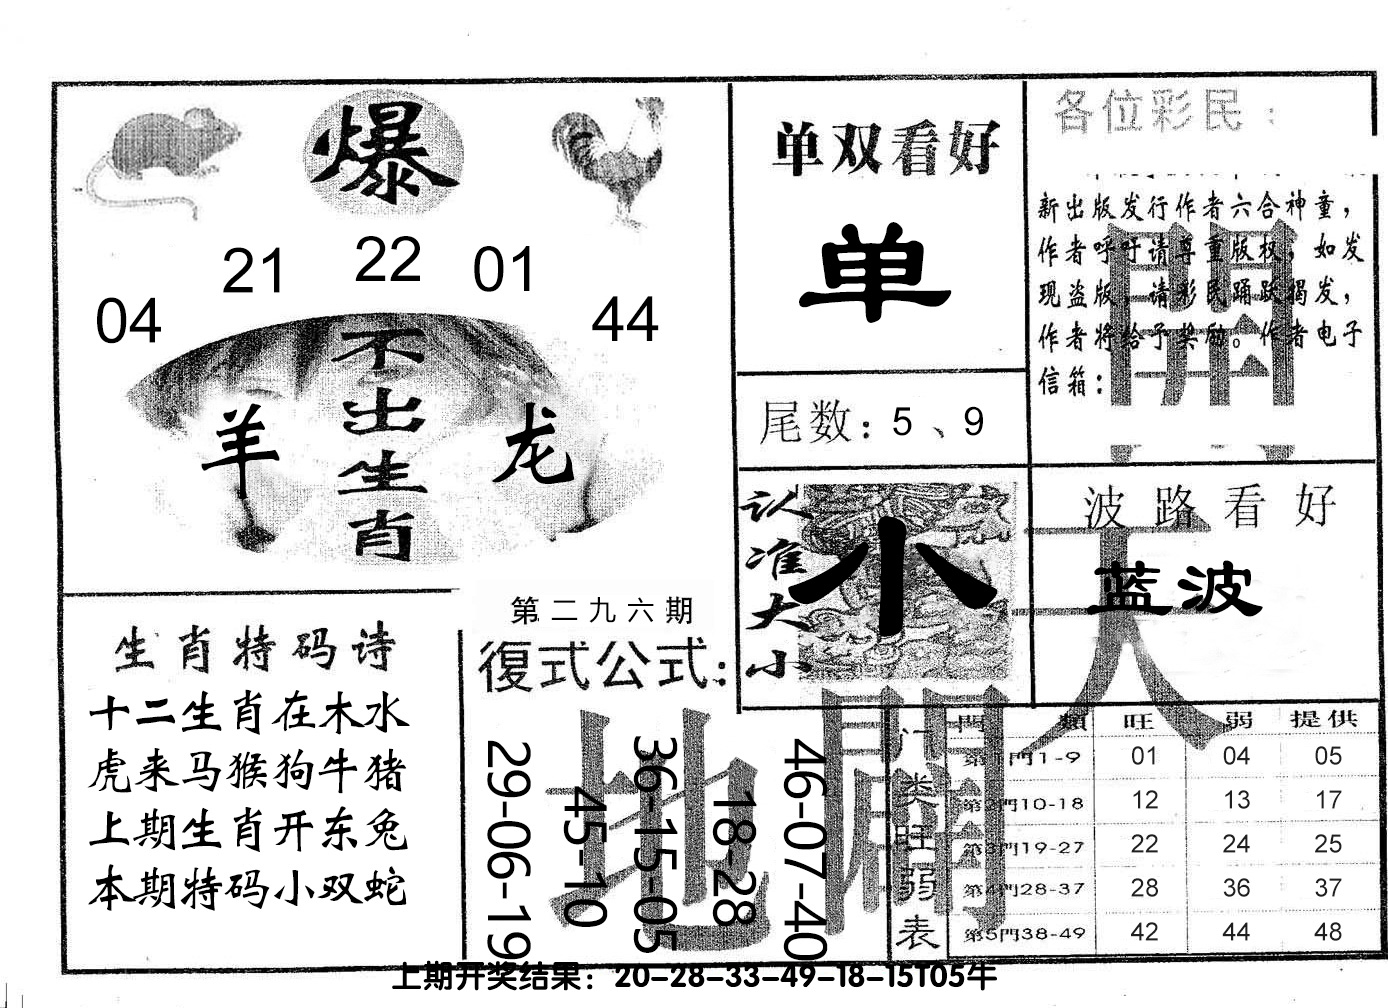 爆
04 21 22 01 44
不出生肖
羊 龙
单双看好
单
尾数：5、9
各位彩民：
新出版发行作者六合神童，
作者呼吁请尊重版权，如发
现盗版，请彩民踊跃揭发，
作者将给予奖励。作者电子
信箱：
開
认准大小
小
波路看好
蓝波
天
生肖特码诗
十二生肖在木水
虎来马猴狗牛猪
上期生肖开东兔
本期特码小双蛇
第二九六期
復式公式：
29-06-19
45-10
36-15-05
18-28
46-07-40
地
门类旺弱表
門類 旺 弱 提供
第1門1-9 01 04 05
第2門10-18 12 13 17
第3門19-27 22 24 25
第4門28-37 28 36 37
第5門38-49 42 44 48
上期开奖结果：20-28-33-49-18-15T05牛